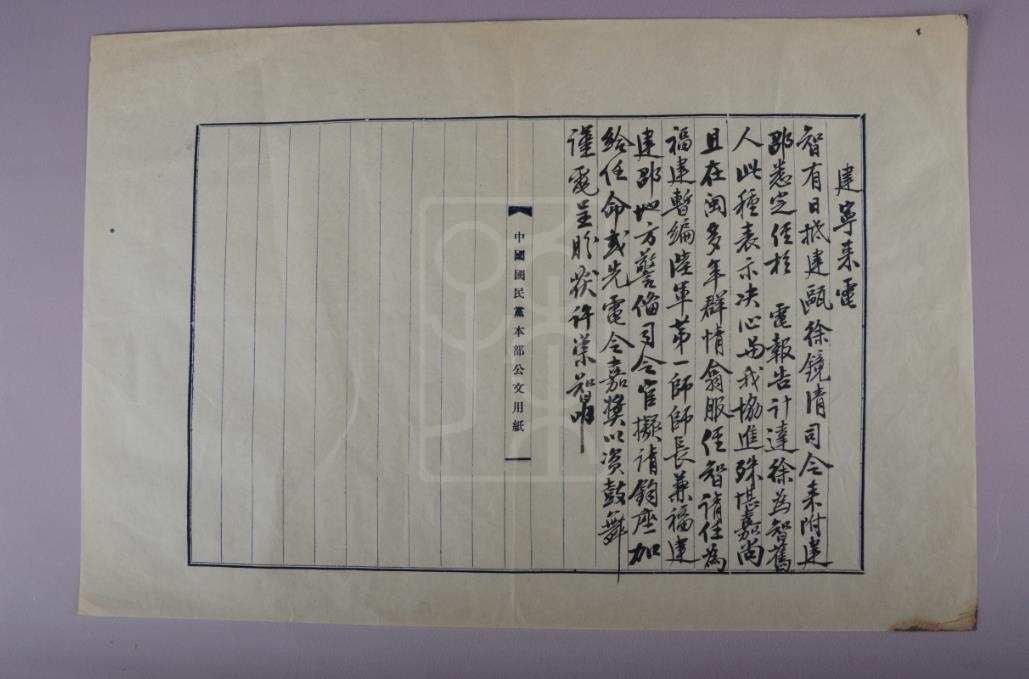 建寧來電
智有日抵建甌徐鏡清司令來附建
邵悉定經於 電報告計達徐為智舊
人此種表示决心與我協進殊堪嘉尚
且在閩多年群情翕服經智請任為
福建暫編陸軍第一師師長兼福建
建邵地方警備司令官擬請鈞座加
給任命或先電令嘉獎以資鼓舞
謹電呈盼茯許崇智叩
中國國民黨本部公文用紙